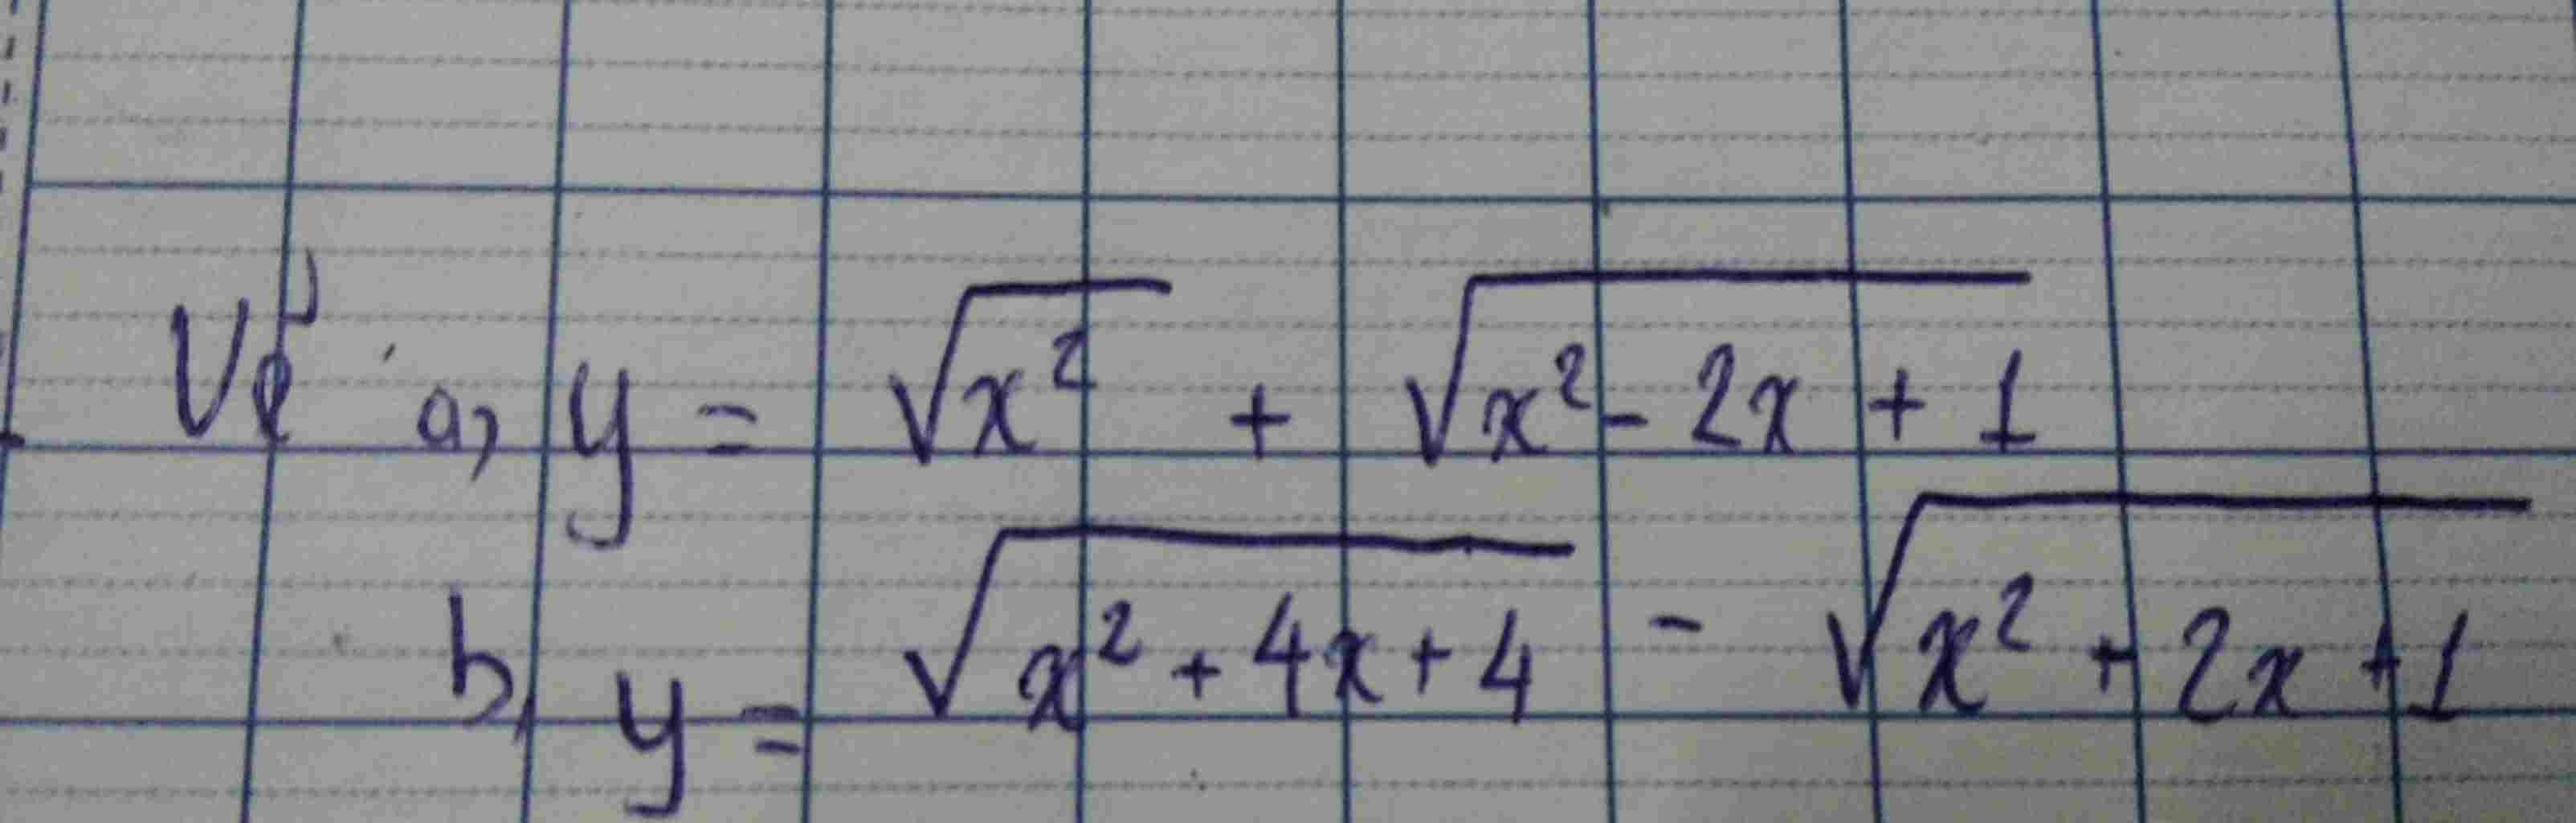 Vẽ a, y = √x² + √x² - 2x + 1
b, y = √x² + 4x + 4 - √x² + 2x + 1